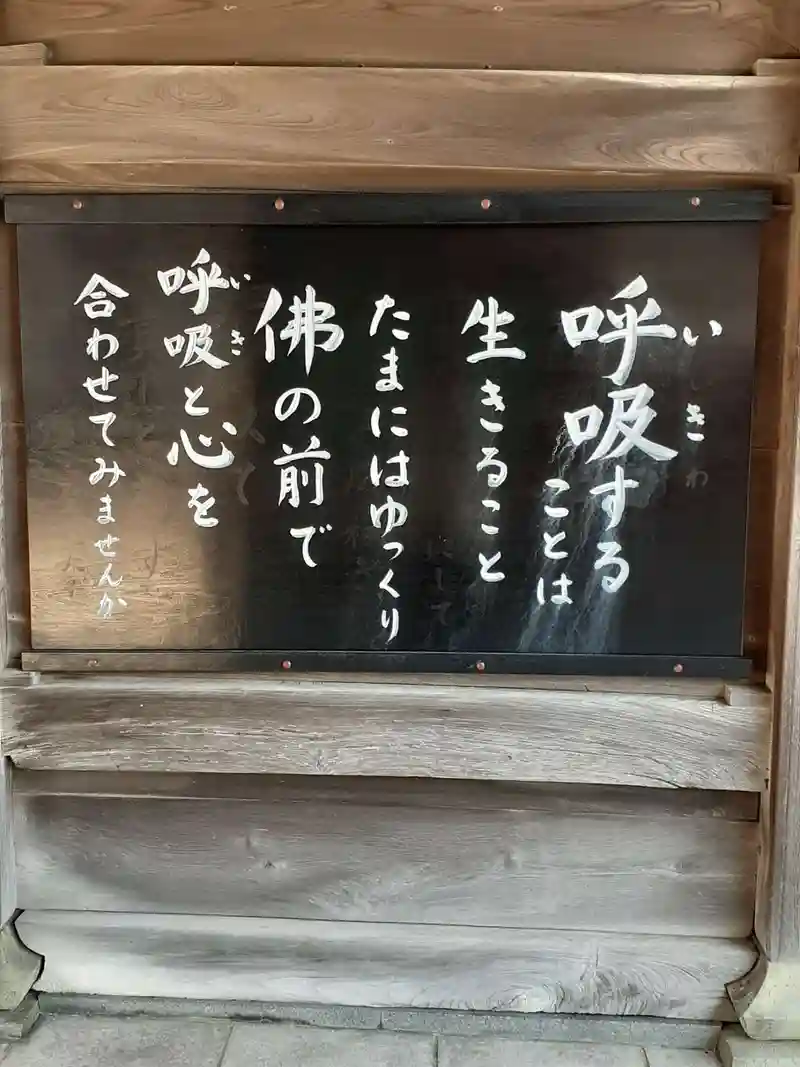 呼吸する
いき
ことは
生きること
たまにはゆっくり
佛の前で
呼吸と心を
いき
合わせてみませんか